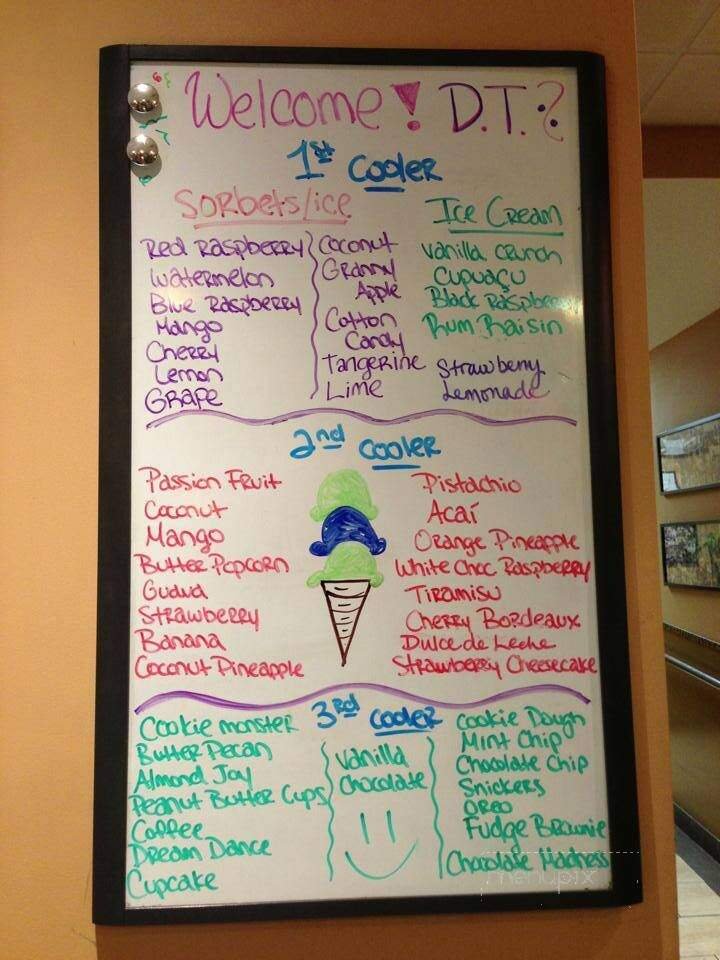 Welcome! D.T.?
1st Cooler
Sorbets/ice
Red Raspberry
Watermelon
Blue Raspberry
Mango
Cherry
Lemon
Grape
Coconut
Granny
Apple
Cotton
Candy
Tangerine
Lime
Ice Cream
Vanilla Crunch
Cupuaçu
Black Raspberry
Rum Raisin
Strawberry
Lemonade
2nd Cooler
Passion Fruit
Coconut
Mango
Butter Popcorn
Guava
Strawberry
Banana
Coconut Pineapple
Pistachio
Acaí
Orange Pineapple
White Choc Raspberry
Tiramisu
Cherry Bordeaux
Dulce de Leche
Strawberry Cheesecake
3rd Cooler
Cookie monster
Butter Pecan
Almond Joy
Peanut Butter Cups
Coffee
Dream Dance
Cupcake
Vanilla
Chocolate
Cookie Dough
Mint Chip
Chocolate Chip
Snickers
Oreo
Fudge Brownie
Chocolate Madness
menupix